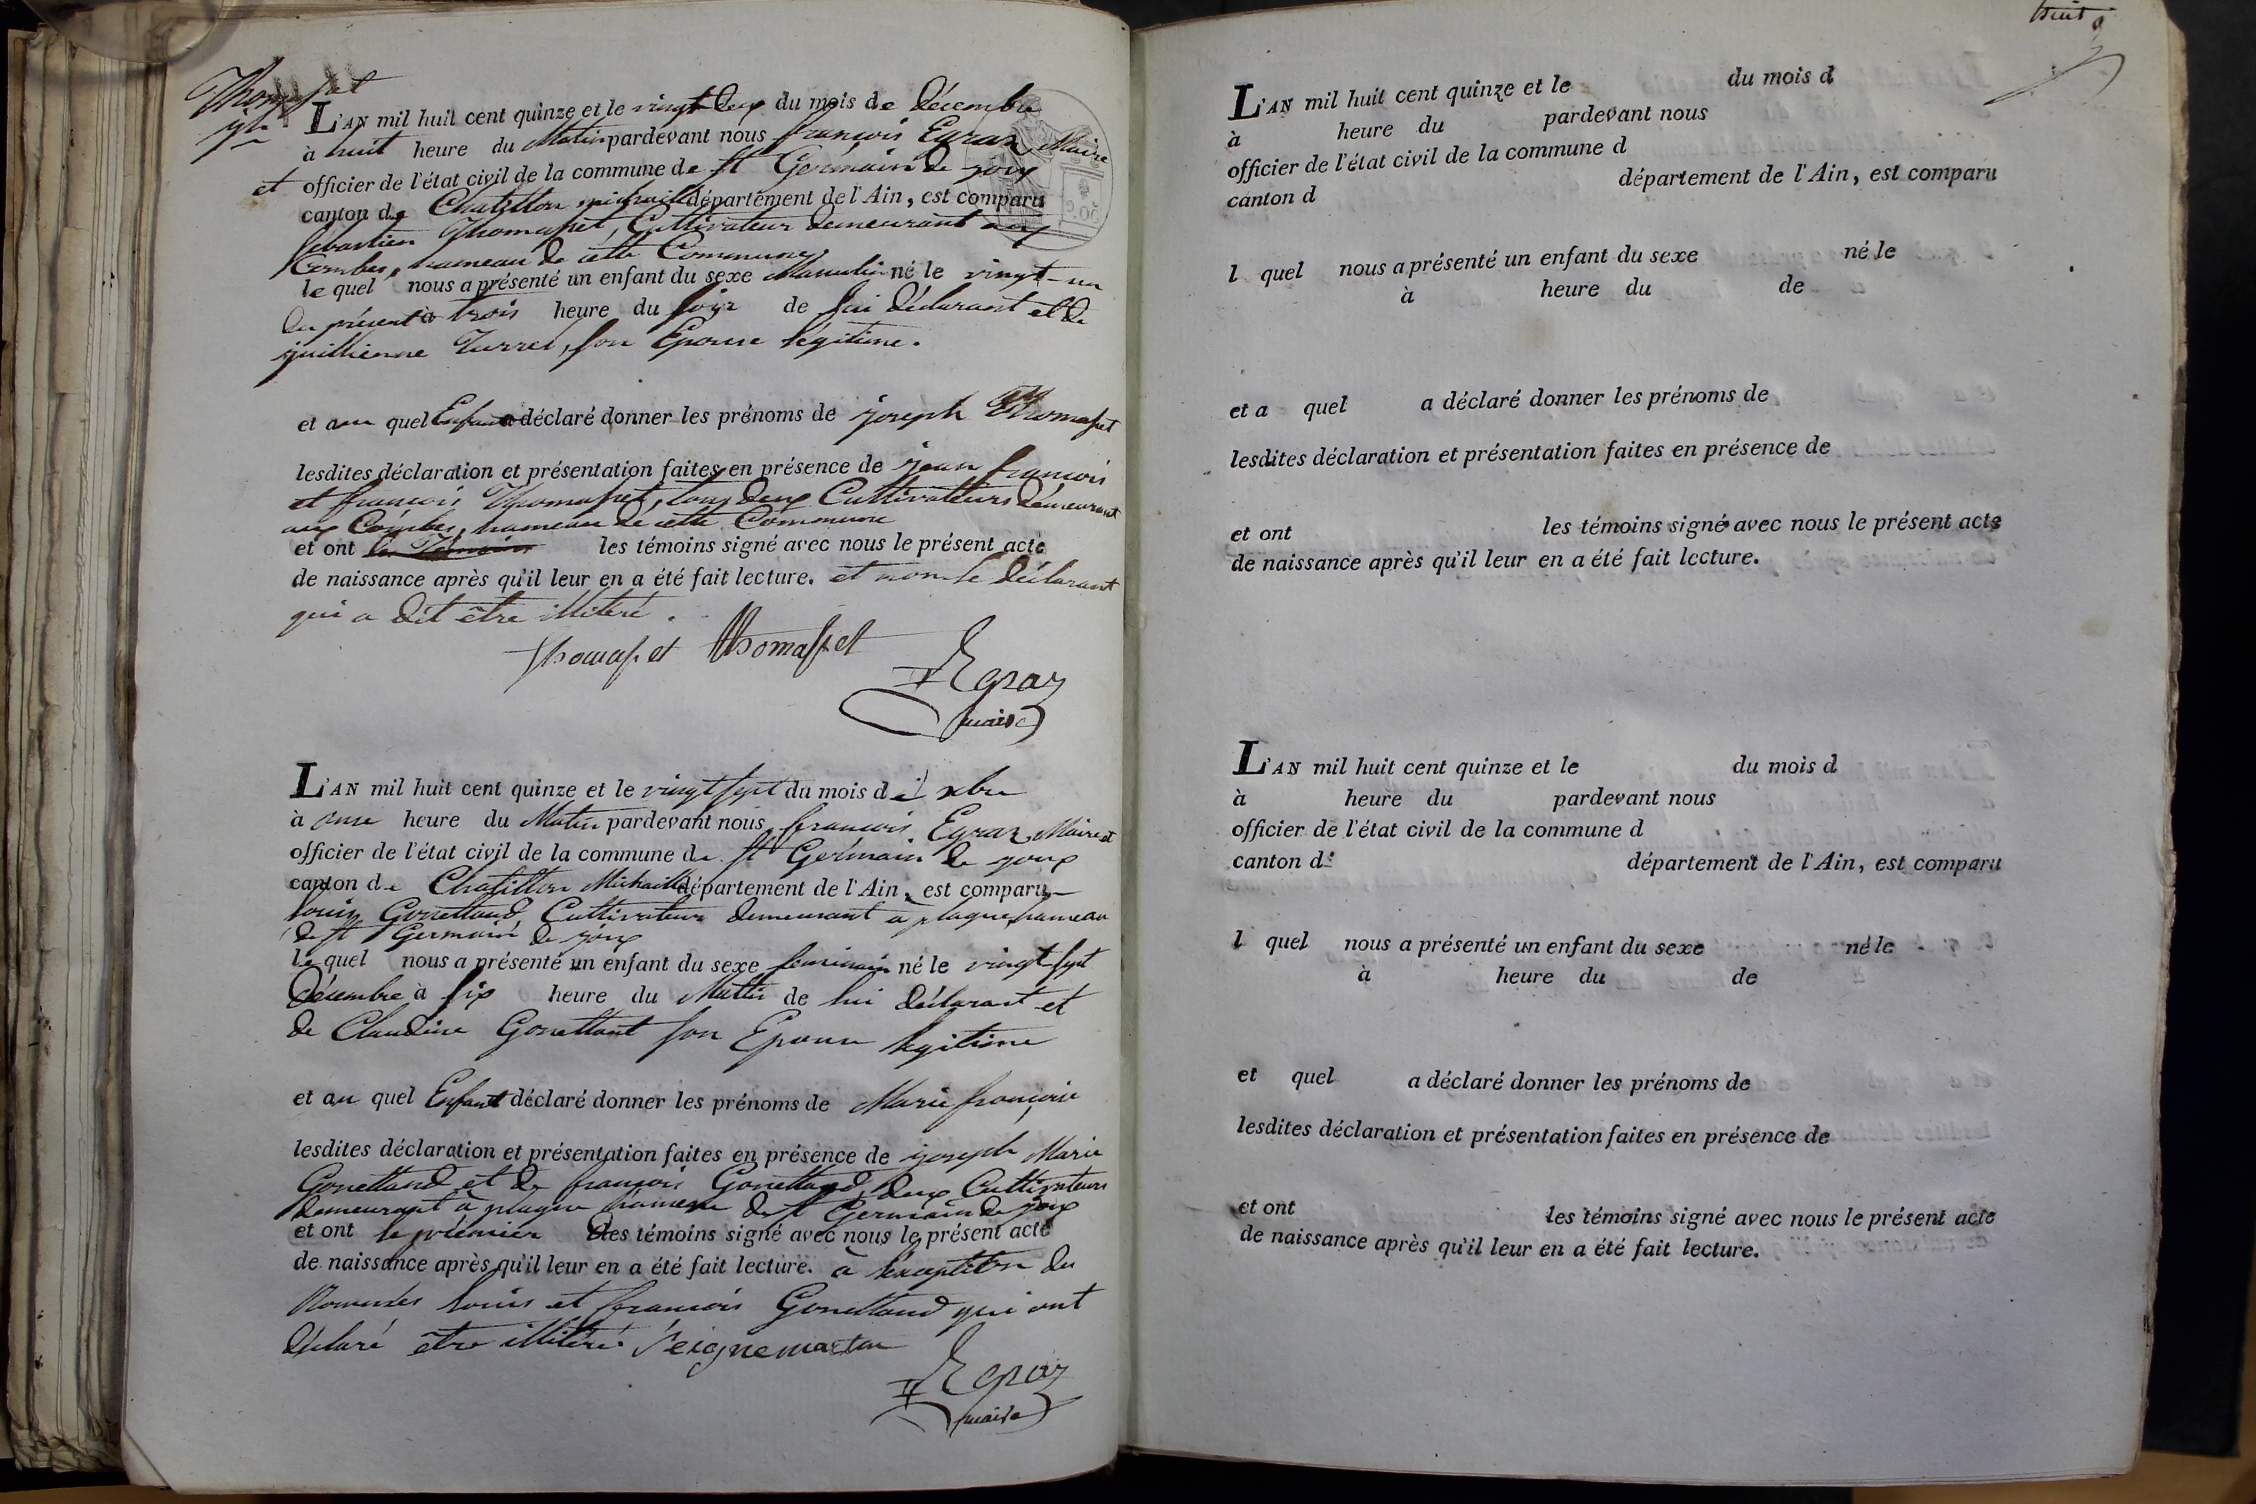 Thomasset
L'AN mil huit cent quinze et le vingt deux du mois de décembre
à huit heure du Matin pardevant nous françois Egraz, Maire
et officier de l'état civil de la commune de st Germain de joux
canton de Chatillon michaille département de l'Ain, est comparu
Sébastien Thomasset, Cultivateur demeurant aux
Combes, hameau de cette Commune
le quel nous a présenté un enfant du sexe Masculin né le vingt-un
du présent à trois heure du soir de lui déclarant et de
juillienne Turrel, son Epouse légitime.
et au quel Enfant a déclaré donner les prénoms de joseph Thomasset
lesdites déclaration et présentation faites en présence de jean françois
et françois Thomasset, tous deux Cultivateurs démeurant
aux Combes, hameau de cette Commune
et ont les témoins signé avec nous le présent acte
de naissance après qu'il leur en a été fait lecture. et non le déclarant
qui a dit être illiteré.
Thomasset Thomasset
Egraz
maire
L'AN mil huit cent quinze et le vingt sept du mois de xbre
à onse heure du Matin pardevant nous françois Egraz, Maire et
officier de l'état civil de la commune de st Germain de joux
canton de Chatillon Michaille département de l'Ain, est comparu
Louis Gonettand, Cultivateur demeurant à plagne, hameau
de st Germain de joux
le quel nous a présenté un enfant du sexe feminin né le vingt-sept
Décembre à six heure du Mattin de lui déclarant et
de Claudine Gonettant son Epouse légitime
et au quel Enfant déclaré donner les prénoms de Marie françoise
lesdites déclaration et présentation faites en présence de joseph Marie
Gonettand et de françois Gonettand, deux Cultivateurs
demeurant à plagne hameau de st Germain de joux
et ont le prémier des témoins signé avec nous le présent acte
de naissance après qu'il leur en a été fait lecture. à l'exception du
Nommés Louis et françois Gonettand qui ont
déclaré être illitéré. Seignemartin
Egraz
maire
huit
L'AN mil huit cent quinze et le du mois d
à heure du pardevant nous
officier de l'état civil de la commune d
canton d département de l'Ain, est comparu
l quel nous a présenté un enfant du sexe né le
à heure du de
et a quel a déclaré donner les prénoms de
lesdites déclaration et présentation faites en présence de
et ont les témoins signé avec nous le présent acte
de naissance après qu'il leur en a été fait lecture.
L'AN mil huit cent quinze et le du mois d
à heure du pardevant nous
officier de l'état civil de la commune d
canton d département de l'Ain, est comparu
l quel nous a présenté un enfant du sexe né le
à heure du de
et quel a déclaré donner les prénoms de
lesdites déclaration et présentation faites en présence de
et ont les témoins signé avec nous le présent acte
de naissance après qu'il leur en a été fait lecture.